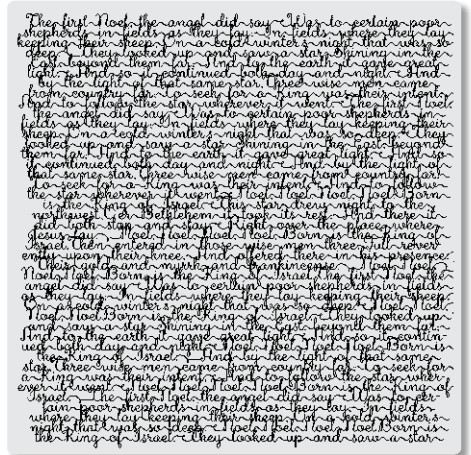 The first Noel the angel did say Was to certain poor
shepherds in fields as they lay In fields where they lay
keeping their sheep On a cold winter's night that was so
deep They looked up and saw a star Shining in the
East beyond them far And to the earth it gave great
light And so it continued both day and night And
by the light of that same star Three wise men came
from country far To seek for a King was their intent
And to follow the star wherever it went The first Noel
the angel did say Was to certain poor shepherds in
fields as they lay In fields where they lay keeping their
sheep On a cold winter's night that was so deep They
looked up and saw a star Shining in the East beyond
them far And to the earth it gave great light And so
it continued both day and night And by the light of
that same star Three wise men came from country far
To seek for a King was their intent And to follow
the star wherever it went Noel Noel Noel Noel Born
is the King of Israel This star drew night to the
northwest O'er Bethlehem it took its rest And there it
did both stop and stay Right over the place where
Jesus lay Noel Noel Noel Noel Born is the King of
Israel Then entered in those wise men three Full rever
ently upon their knee And offered there in his presence
Their gold and myrrh and frankincense Noel Noel
Noel Noel Born is the King of Israel The first Noel the
angel did say Was to certain poor shepherds in fields
as they lay In fields where they lay keeping their sheep
On a cold winter's night that was so deep Noel Noel
Noel Noel Born is the King of Israel They looked up
and saw a star Shining in the East beyond them far
And to the earth it gave great light And so it contin
ued both day and night Noel Noel Noel Noel Born is
the King of Israel And by the light of that same
star Three wise men came from country far To seek for
a King was their intent And to follow the star wher
ever it went Noel Noel Noel Noel Born is the King of
Israel The first Noel the angel did say Was to cer
tain poor shepherds in fields as they lay In fields
where they lay keeping their sheep On a cold winter's
night that was so deep Noel Noel Noel Noel Born is
the King of Israel They looked up and saw a star